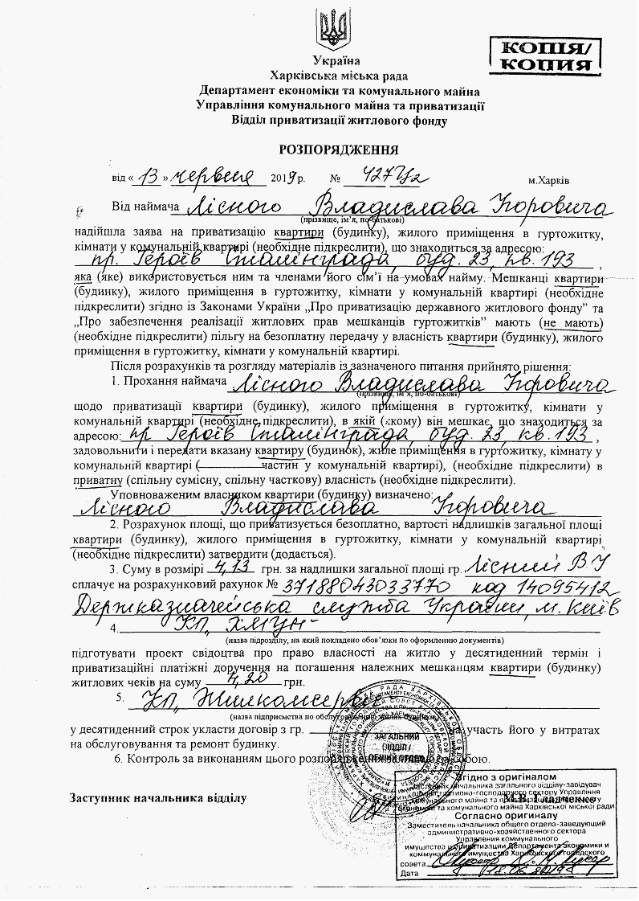 КОПІЯ/
КОПИЯ
Україна
Харківська міська рада
Департамент економіки та комунального майна
Управління комунального майна та приватизації
Відділ приватизації житлового фонду
РОЗПОРЯДЖЕННЯ
від « 13 » червня 2019 р. № м.Харків
Від наймача Лісного Владислава Ігоровича
(прізвище, ім’я, по-батькові)
надійшла заява на приватизацію квартири (будинку), жилого приміщення в гуртожитку,
кімнати у комунальній квартирі (необхідне підкреслити), що знаходиться за адресою:
пр. Героїв Сталінграда, буд. 23, кв. 193 ,
яка (яке) використовується ним та членами його сім’ї на умовах найму. Мешканці квартири
(будинку), жилого приміщення в гуртожитку, кімнати у комунальній квартирі (необхідне
підкреслити) згідно із Законами України „Про приватизацію державного житлового фонду” та
„Про забезпечення реалізації житлових прав мешканців гуртожитків” мають (не мають)
(необхідне підкреслити) пільгу на безоплатну передачу у власність квартири (будинку), жилого
приміщення в гуртожитку, кімнати у комунальній квартирі.
Після розрахунків та розгляду матеріалів із зазначеного питання прийнято рішення:
1. Прохання наймача Лісного Владислава Ігоровича
(прізвище, ім’я, по-батькові)
щодо приватизації квартири (будинку), жилого приміщення в гуртожитку, кімнати у
комунальній квартирі (необхідне підкреслити), в якій (якому) він мешкає, що знаходиться за
адресою: пр. Героїв Сталінграда, буд. 23, кв. 193 ,
задовольнити і передати вказану квартиру (будинок), жиле приміщення в гуртожитку, кімнату у
комунальній квартирі ( частин у комунальній квартирі), (необхідне підкреслити) в
приватну (спільну сумісну, спільну часткову) власність (необхідне підкреслити).
Уповноваженим власником квартири (будинку) визначено:
Лісного Владислава Ігоровича
2. Розрахунок площі, що приватизується безоплатно, вартості надлишків загальної площі
квартири (будинку), жилого приміщення в гуртожитку, кімнати у комунальній квартирі
(необхідне підкреслити) затвердити (додається).
3. Суму в розмірі 4,73 грн. за надлишки загальної площі гр. Лісний В.І
сплачує на розрахунковий рахунок № 37188043033770 код 14095412
Держказначейська служба України, м. Київ
4. КП „ХМУН"
(назва підрозділу, на який покладено обов’язки по оформленню документів)
підготувати проект свідоцтва про право власності на житло у десятиденний термін і
приватизаційні платіжні доручення на погашення належних мешканцям квартири (будинку)
житлових чеків на суму 4,20 грн.
5. КП „Жилкомсервіс"
(назва підприємства по
у десятиденний строк укласти договір з гр. на участь його у витратах
на обслуговування та ремонт будинку.
6. Контроль за виконанням цього собою.
ЗАГАЛЬНИЙ
ВІДДІЛ /
ОБЩИЙ ОТДЕЛ
Заступник начальника відділу М.В. Гладченко
Згідно з оригіналом
Заступник начальника загального відділу-завідувач
адміністративно-господарчого сектору Управління
комунального майна та приватизації Департаменту
економіки та комунального майна Харківської міської ради
Согласно оригиналу
Заместитель начальника общего отдела-заведующий
административно-хозяйственного сектора
Управления коммунального
имущества и приватизации Департамента Экономики и
коммунального имущества Харьковского городского
совета
Дата